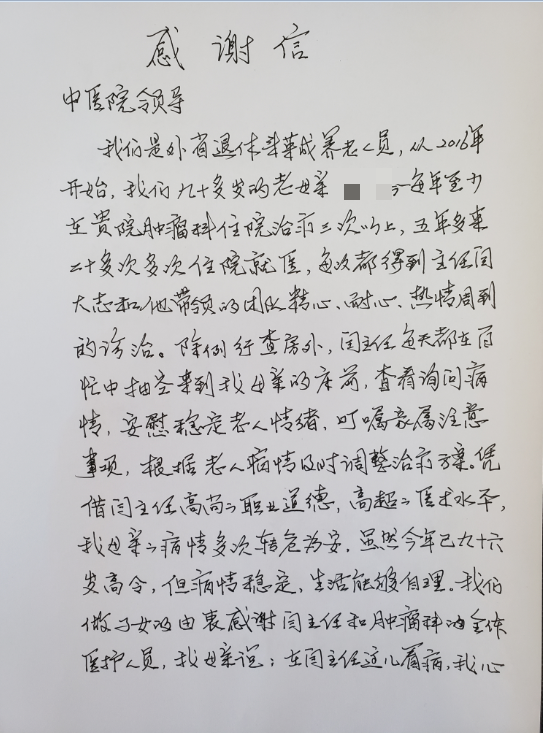 感谢信
中医院领导
我们是外省退休来蓉城养老人员，从2016年
开始，我们九十多岁的老母亲 每年至少
在贵院肿瘤科住院治疗三次以上，五年多来
二十多次多次住院就医，每次都得到主任闫
大志和他带领的团队精心、耐心、热情周到
的诊治。除例行查房外，闫主任每天都在百
忙中抽空来到我母亲的床前，查看询问病
情，安慰稳定老人情绪，叮嘱亲属注意
事项，根据老人病情及时调整治疗方案。凭
借闫主任高尚的职业道德，高超的医术水平，
我母亲的病情多次转危为安，虽然今年已九十六
岁高令，但病情稳定，生活能够自理。我们
做子女的由衷感谢闫主任和肿瘤科的全体
医护人员，我母亲说：在闫主任这儿看病，我心